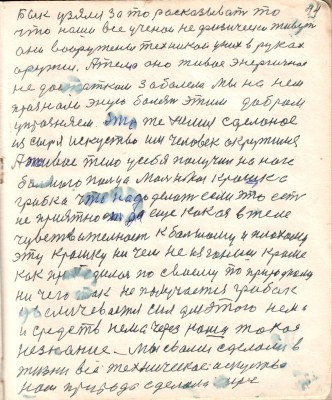 Были узяли за то росказывать то
что наши все ученои не физически живут
они вооружены техникой у них в руках
оружии. А тело оно живое энергичное
не достатком заболело мы на нем
признали эную болят этим добром
управляем. Это же химия сделаное
из сыря искуство им человек окружился
А живое тело у себя получил на ноге
большого пальца маленькая крошка
грибка что надо делат если это есть
не приятность да еще какая в теле
чувствителност к большому и плохому
эту крошку ни чем не изгониш кроме
как приходилося по своему то природному
ни чего так не получается грибок
увеличевается сил для этого нема
и средств нема через наши такоя
незнание. Мы свами сделали в
жизни все техническое искуство
нам природа сделала